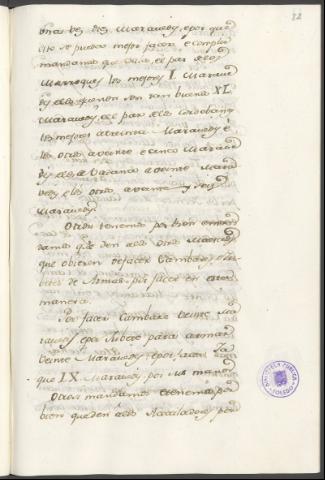 82
otras les des Maravedis, e por que
esto se pueda mejor facer e complir
mandamos que den, el par de los
Marroquies los mejores L. Marave
dis e los que non son tan buenos XL.
Maravedis, e el par de los Cordobanes
los mejores a treinta Maravedis e
los otros a veinte e cinco Marave
dis e las Vadanas a veinte Mara
vedis e los otros a veinte y seis
Maravedis.
Otrosi tenemos por bien e man
damos que den a los otros Maestros
que obieren de facer Cambaxes e Jube
tes de Armas, por facer en esta
manera.
Por facer Cambax veinte Ma
ravedis e por Jubete para armar
veinte Maravedis, e por facer Ja
que IX. Maravedis, por sus manos
Otrosi mandamos e tenemos por
bien que den a los Acicaladores por
BIBLIOTECA PUBLICA
TOLEDO